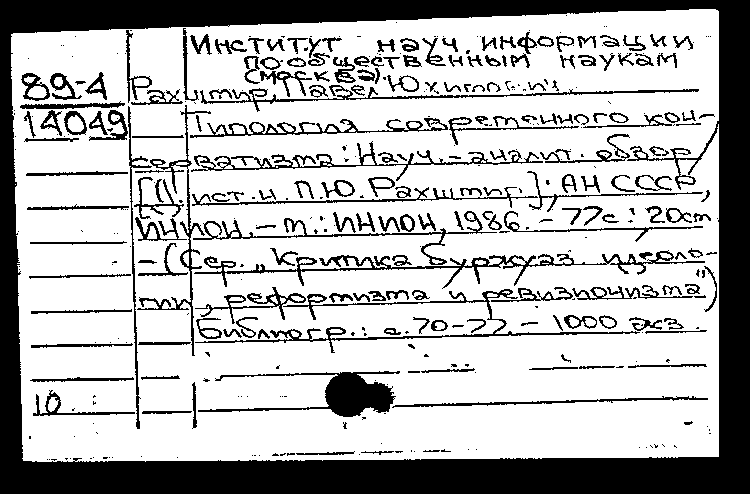 Институт науч. информации
по общественным наукам
(Москва).
89-4 Рахшмир, Павел Юхимович
14049 Типология современного кон-
серватизма: Науч.-аналит. обзор /
ист. н. П.Ю. Рахшмир]; АН СССР,
ИНИОН. — М.: ИНИОН, 1986. — 77с.; 20см
— (Сер. „Критика буржуаз. идеоло-
гии, реформизма и ревизионизма")
Библиогр.: с. 70-77. — 1000 экз.
10